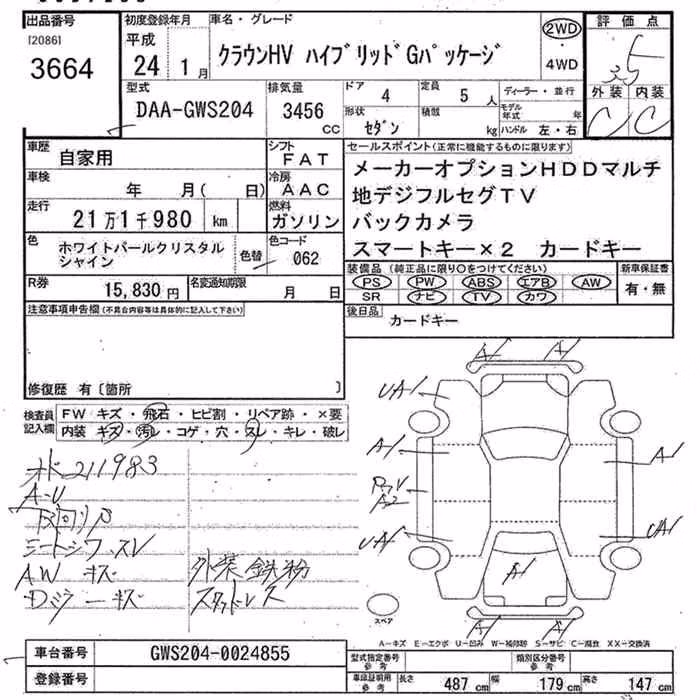 出品番号 初度登録年月 車名・グレード 評価点
[2086]
3664
平成
24 1月
クラウンHV ハイブリッドGパッケージ
2WD
4WD
外装 内装
C C
型式 排気量 ドア 定員 ディーラー・並行
DAA-GWS204 3456 CC 4 5 人
モデル年式 年
形状 積載
セダン kg ハンドル 左・右
車歴 シフト セールスポイント(正常に機能するものに限ります)
自家用 FAT
メーカーオプションHDDマルチ
車検 冷房
年 月( 日) AAC
地デジフルセグTV
走行 燃料
21万1千980 km ガソリン
バックカメラ
色 色コード
ホワイトパールクリスタル
シャイン
色替 062
スマートキー×2 カードキー
装備品(純正品に限り○をつけてください) 新車保証書
R券 名変通知期限
15,830円 月 日
PS PW ABS エアB AW 有・無
SR ナビ TV カワ
注意事項申告欄(不具合内容等は具体的に記入して下さい)
後日品 カードキー
修復歴 有〔箇所 〕
検査員記入欄
FW キズ・飛石・ヒビ割・リペア跡・×要
内装 キズ・汚レ・コゲ・穴・スレ・キレ・破レ
A1 A1
UA1
A1 A1
A2
UA1 UA1
A1
A1 A1
211983
A-U
シートシワ、スレ
AW キズ 外装 鉄粉
スタッドレス
スペア
A-キズ E-エクボ U-凹み W-補修跡 S-サビ C-腐食 XX-交換済
車台番号 GWS204-0024855
登録番号
型式指定番号 参考 類別区分番号 参考
車庫証明用 参考 長さ 487 cm 幅 179 cm 高さ 147 cm